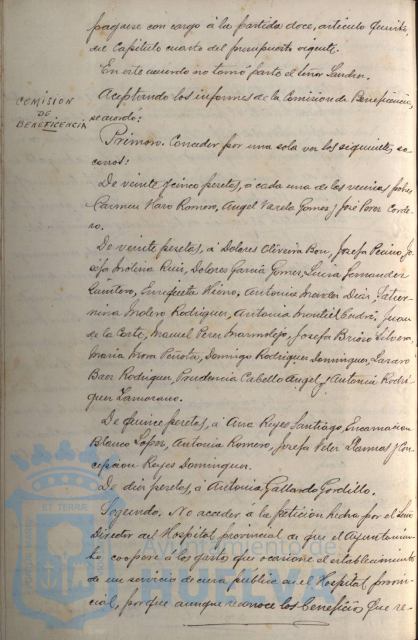 páguese con cargo á la partida doce, artículo quinto,
del Capítulo cuarto del presupuesto vigente.
En este acuerdo no tomó parte el Señor
Aceptando los informes de la Comision de Beneficencia,
se acordó:
COMISION
DE
BENEFICENCIA
Primero. Conceder por una sola vez los siguientes so-
corros:
De veinte y cinco pesetas, á cada uno de los vecinos pobres
Carmen Haro Romero, Angel Varela Gomez y José Perez Corde-
ro.
De veinte pesetas, á Dolores Oliveira Bou, Josefa Jo-
sefa Molina Ruiz, Dolores Garcia Gomez, Lucia Fernandez
Quintero, Enriqueta Antonia Diaz,
Molero Rodriguez, Antonia Montiel Juan
de la Corte, Manuel Perez Marmolejo, Josefa Silvera
Maria Mora Domingo Rodriguez Dominguez, Lazaro
Baez Rodriguez, Prudencia Cabello Angel y Antonia Rodri-
guez Zamorano.
De quince pesetas, á Ana Reyes Santiago, Encarnacion
Blanco Lopez, Antonia Romero, Josefa Llamas y Con-
cepcion Reyes Dominguez.
De diez pesetas, á Antonia Gallardo Gordillo.
Segundo. No acceder á la peticion hecha por el Señor
Director del Hospital provincial de que el Ayuntamien-
to coopere á los gastos que ocasione el establecimiento
de un servicio de cura pública en el Hospital provin-
cial, porque aunque reconoce los beneficios que re-
ET TERRÆ
Ayuntamiento de
HUELVA